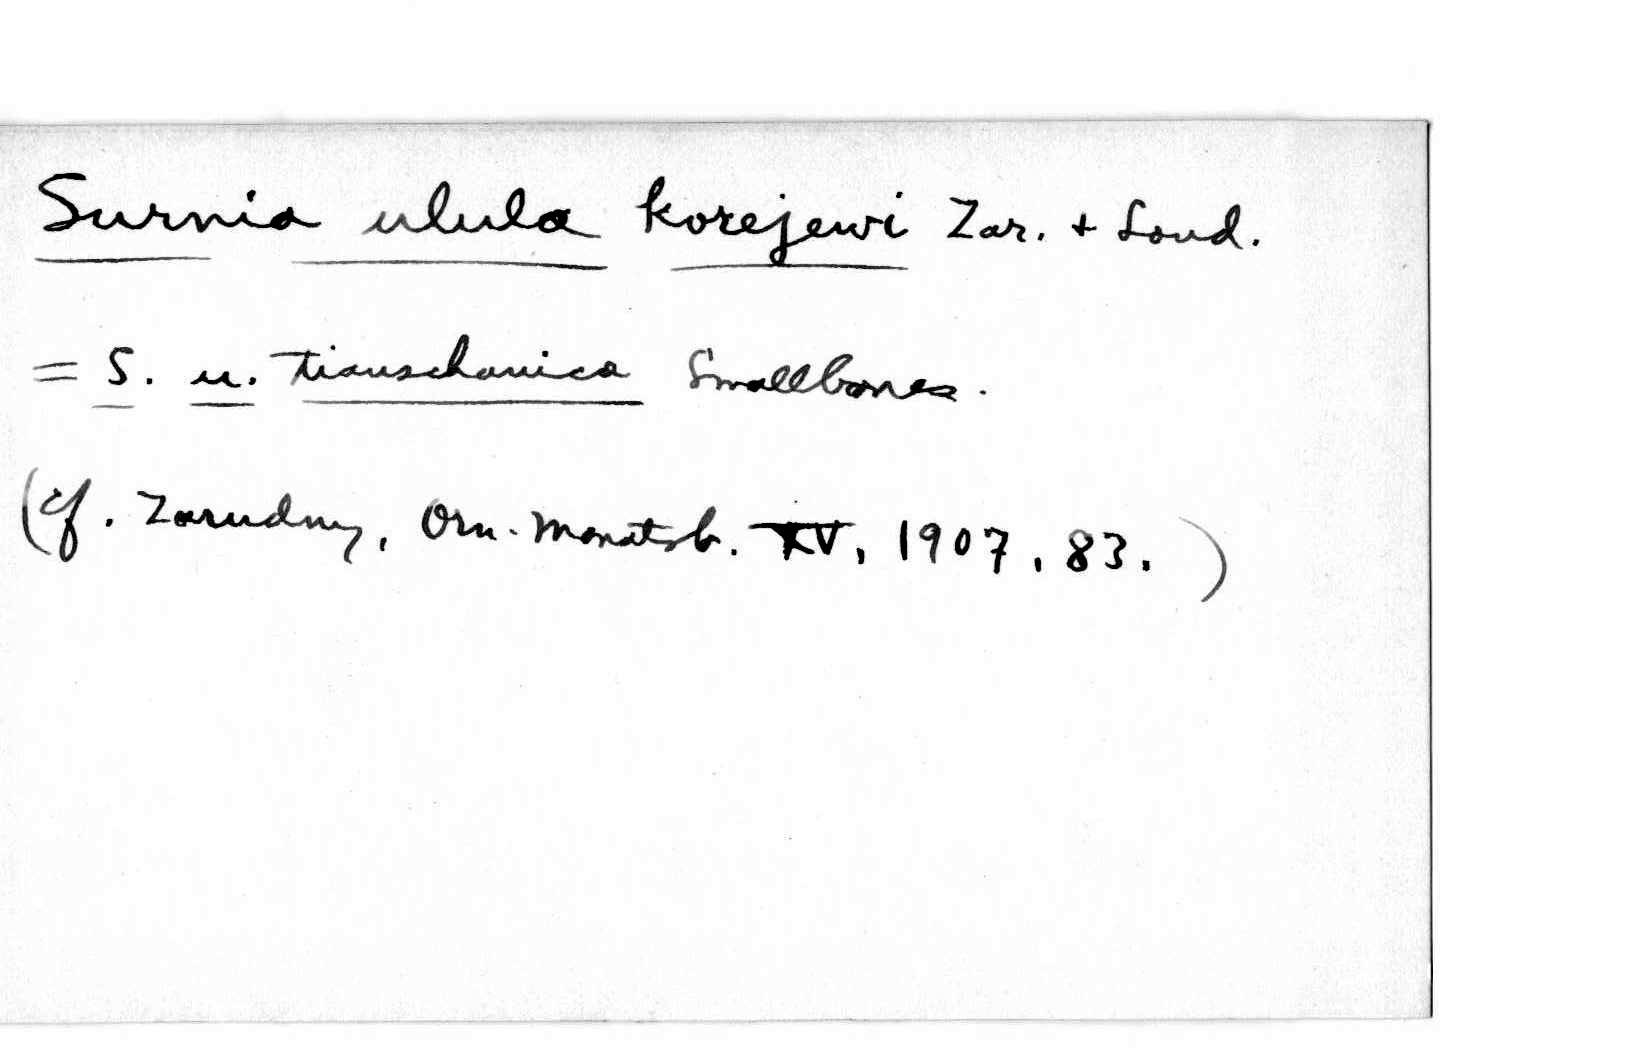 Surnia ulula korejewi Zar. + Loud.
= S. u. tianschanica Smallbones.
(cf. Zarudny, Orn. Monatsb. XV, 1907, 83.)